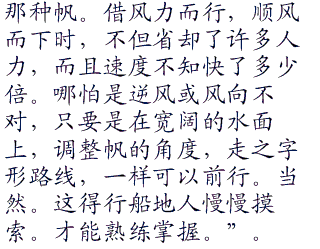 那种帆。借风力而行，顺风
而下时，不但省却了许多人
力，而且速度不知快了多少
倍。哪怕是逆风或风向不
对，只要是在宽阔的水面
上，调整帆的角度，走之字
形路线，一样可以前行。当
然。这得行船地人慢慢摸
索。才能熟练掌握。”。